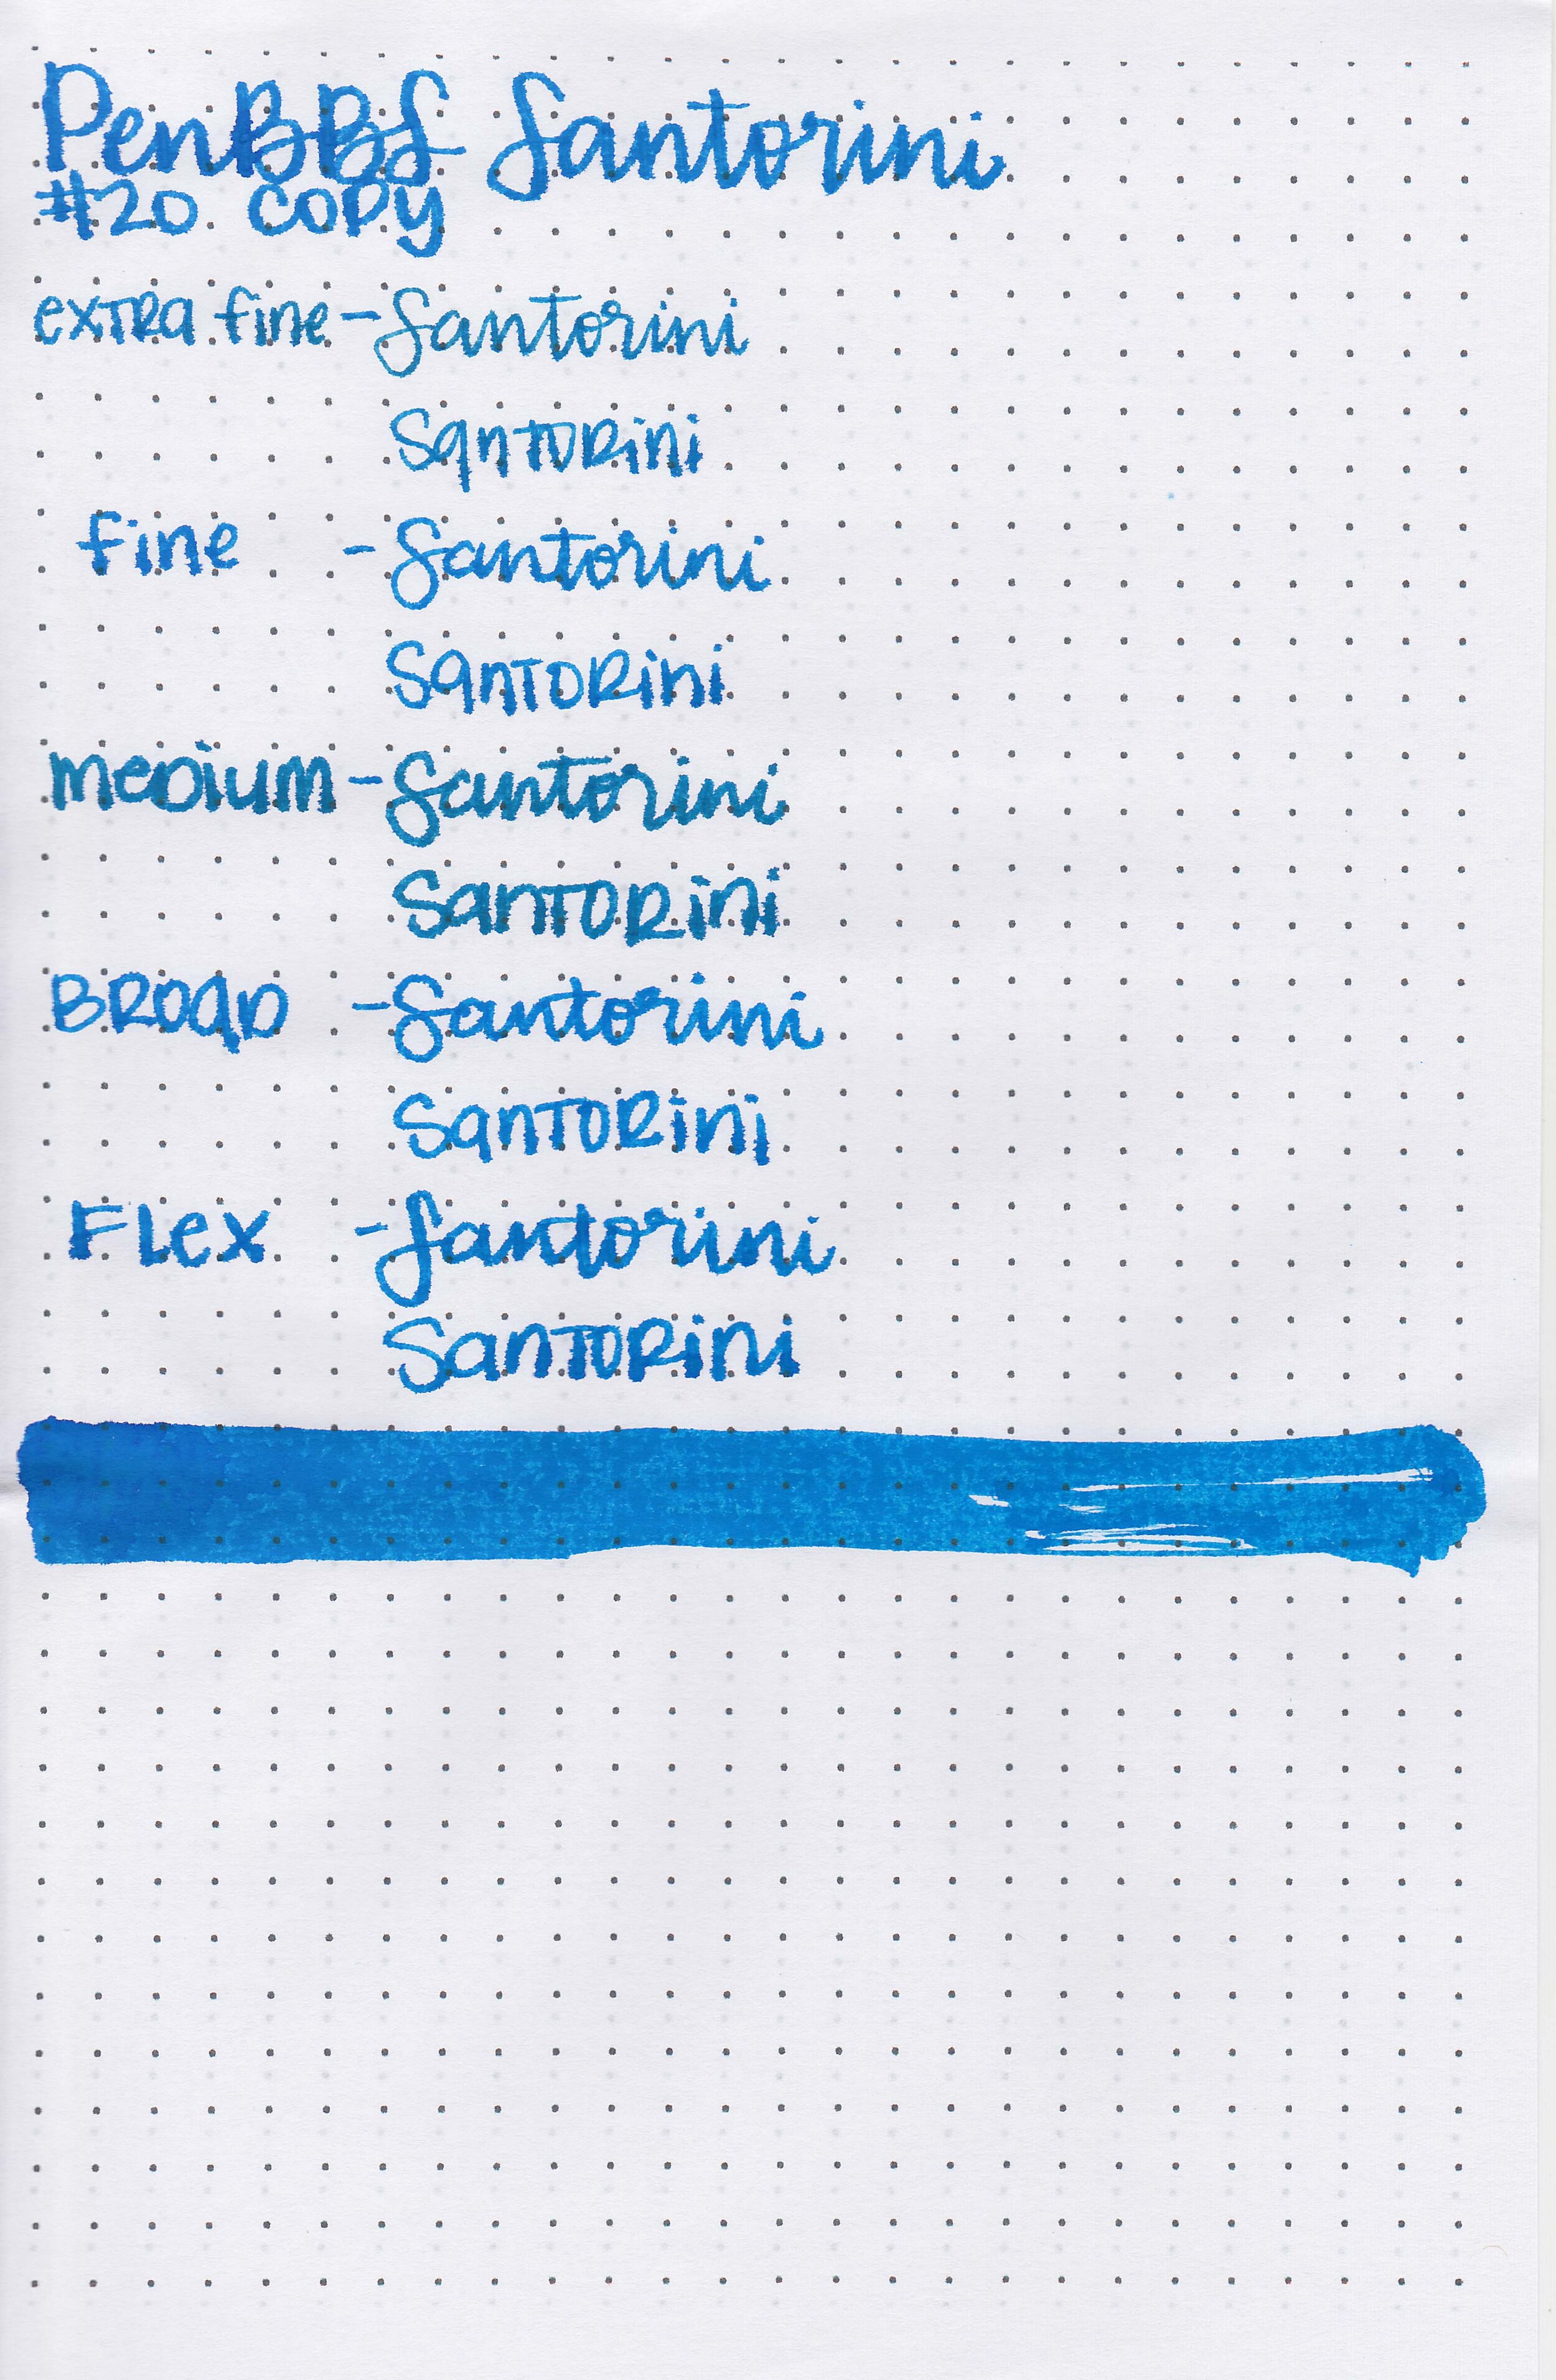 PenBBS Santorini
#20 COPY
extra fine - Santorini
Santorini
fine - Santorini
Santorini
medium - Santorini
Santorini
Broad - Santorini
Santorini
Flex - Santorini
Santorini